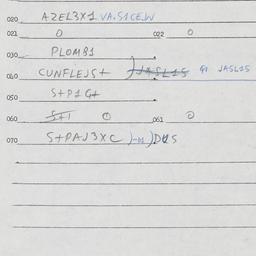 020 AZEL3X1 VA.S1CEJW
021 0 022 0
030 PLOMB1
040 CUNFLEJS+ GI JASL1S
050 S+P1G+
060 0 061 0
070 S+PAJ3XC DUS